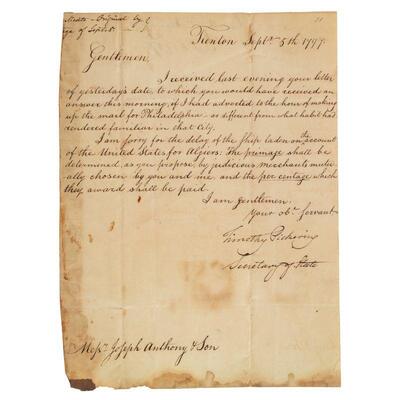 Trenton Sept. 5th 1797.
Gentlemen,
I received last evening your letter
of yesterday's date, to which you would have received an
answer this morning, if I had adverted to the hour of making
up the mail for Philadelphia - as different from what habit had
rendered familiar in that City.
I am sorry for the delay of the ship laden on the account
of the United States for Algiers: The primage shall be
determined, as you propose, by judicious merchants mutu-
ally chosen by you and me, and the per centage which
they award shall be paid.
I am gentlemen,
your ob. servant
Timothy Pickering
Secretary of State
Messrs. Joseph Anthony & Son